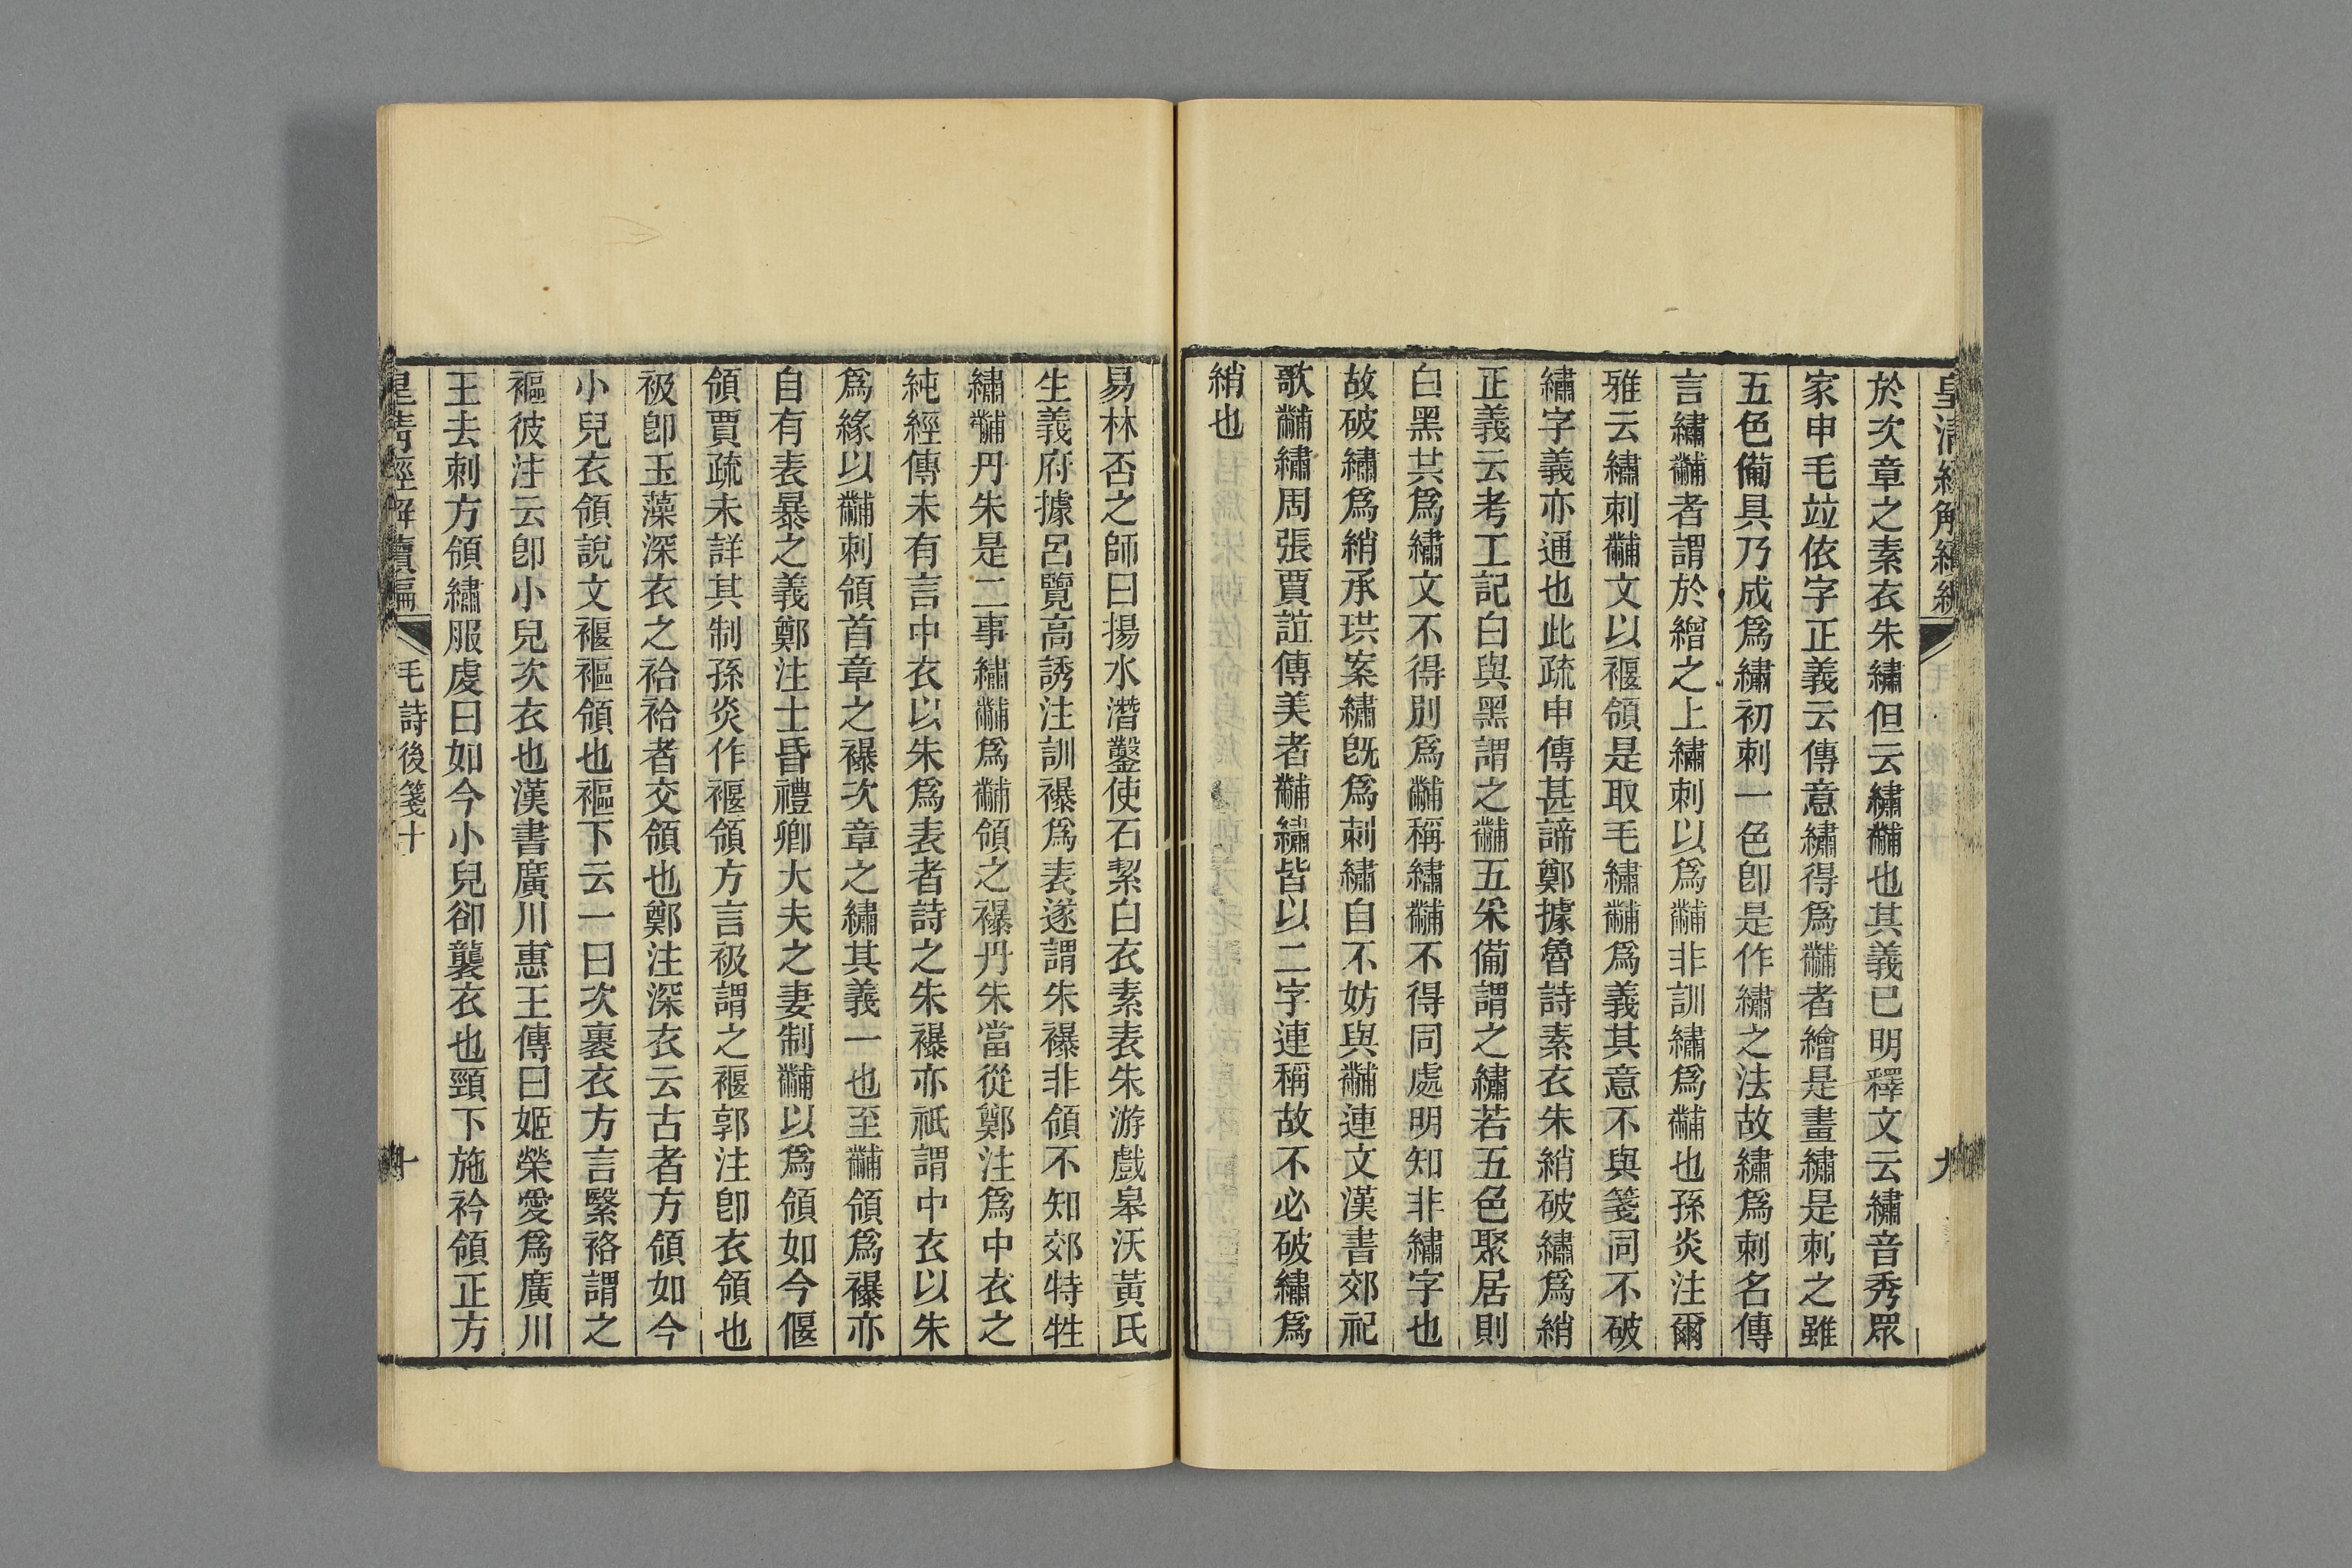 皇清經解續編
九
於次章之素衣朱繡但云繡黼也其義已明釋文云繡音秀眾
家申毛竝依字正義云傳意繡得爲黼者繪是畫繡是刺之雖
五色備具乃成爲繡初刺一色卽是作繡之法故繡爲刺名傳
言繡黼者謂於繒之上繡刺以爲黼非訓繡爲黼也孫炎注爾
雅云繡刺黼文以褗領是取毛繡黼爲義其意不與箋同不破
繡字義亦通也此疏申傳甚諦鄭據魯詩素衣朱綃破繡爲綃
正義云考工記白與黑謂之黼五采備謂之繡若五色聚居則
白黑共爲繡文不得別爲黼稱繡黼不得同處明知非繡字也
故破繡爲綃承珙案繡旣爲刺繡自不妨與黼連文漢書郊祀
歌黼繡周張賈誼傳美者黼繡皆以二字連稱故不必破繡爲
綃也
易林否之師曰揚水潛鑿使石絜白衣素表朱游戲皋沃黃氏
生義府據呂覽高誘注訓襮爲表遂謂朱襮非領不知郊特牲
繡黼丹朱是二事繡黼爲黼領之襮丹朱當從鄭注爲中衣之
純經傳未有言中衣以朱爲表者詩之朱襮亦祇謂中衣以朱
爲緣以黼刺領首章之襮次章之繡其義一也至黼領爲襮亦
自有表暴之義鄭注士昏禮卿大夫之妻制黼以爲領如今偃
領賈疏未詳其制孫炎作褗領方言衱謂之褗郭注卽衣領也
衱卽玉藻深衣之袷袷者交領也鄭注深衣云古者方領如今
小兒衣領說文褗褔領也褔下云一曰次裹衣方言繄袼謂之
褔彼注云卽小兒次衣也漢書廣川惠王傳曰姬榮愛爲廣川
王去刺方領繡服虔曰如今小兒卻襲衣也頸下施衿領正方
皇清經解續編
毛詩後箋十
十